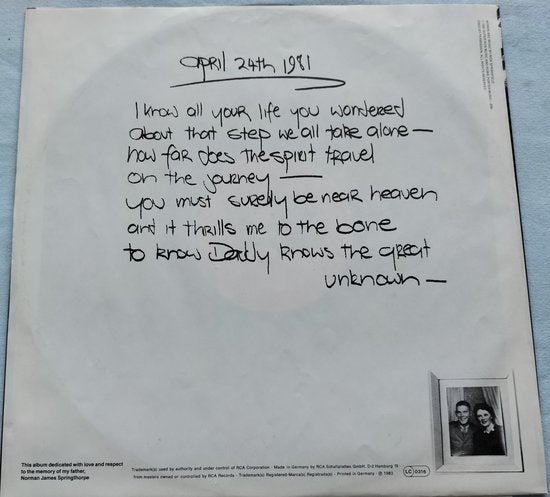 April 24th 1981
I know all your life you wondered
about that step we all take alone —
how far does the spirit travel
on the journey —
you must surely be near heaven
and it thrills me to the bone
to know Daddy knows the great
unknown —
This album dedicated with love and respect
to the memory of my father,
Norman James Springthorpe
Trademark(s) used by authority and under control of RCA Corporation · Made in Germany by RCA Schallplatten GmbH, D-2 Hamburg 19
from masters owned or controlled by RCA Records · Trademark(s) Registered-Marca(s) Registrada(s) · Printed in Germany · ℗ 1983
LC 0316